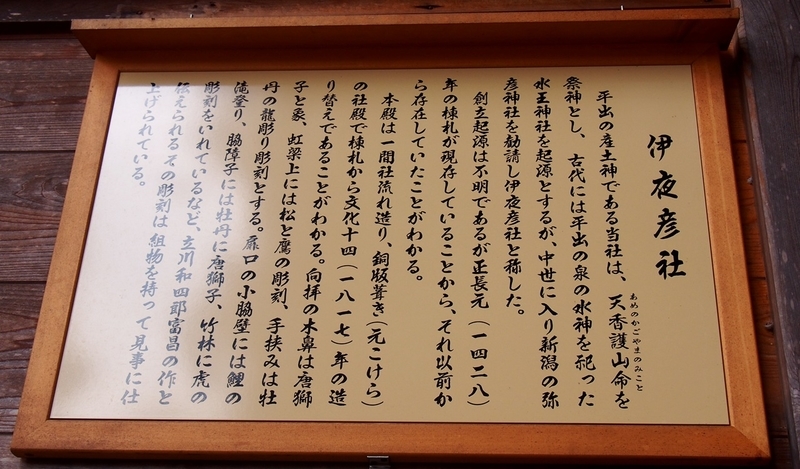 伊夜彦社
平出の産土神である当社は、天香護山命を
あめのかごやまのみこと
祭神とし、古代には平出の泉の水神を祀った
水王神社を起源とするが、中世に入り新潟の弥
彦神社を勧請し伊夜彦社と称した。
創立起源は不明であるが正長元(一四二八)
年の棟札が現存していることから、それ以前か
ら存在していたことがわかる。
本殿は一間社流れ造り、銅版葺き(元こけら)
の社殿で棟札から文化十四(一八一七)年の造
り替えであることがわかる。向拝の木鼻は唐獅
子と象、虹梁上には松と鷹の彫刻、手挟みは牡
丹の龍彫り彫刻とする。扉口の小脇壁には鯉の
滝登り、脇障子には牡丹に唐獅子、竹林に虎の
彫刻をいれているなど、立川和四郎富昌の作と
伝えられるその彫刻は組物を持って見事に仕
上げられている。